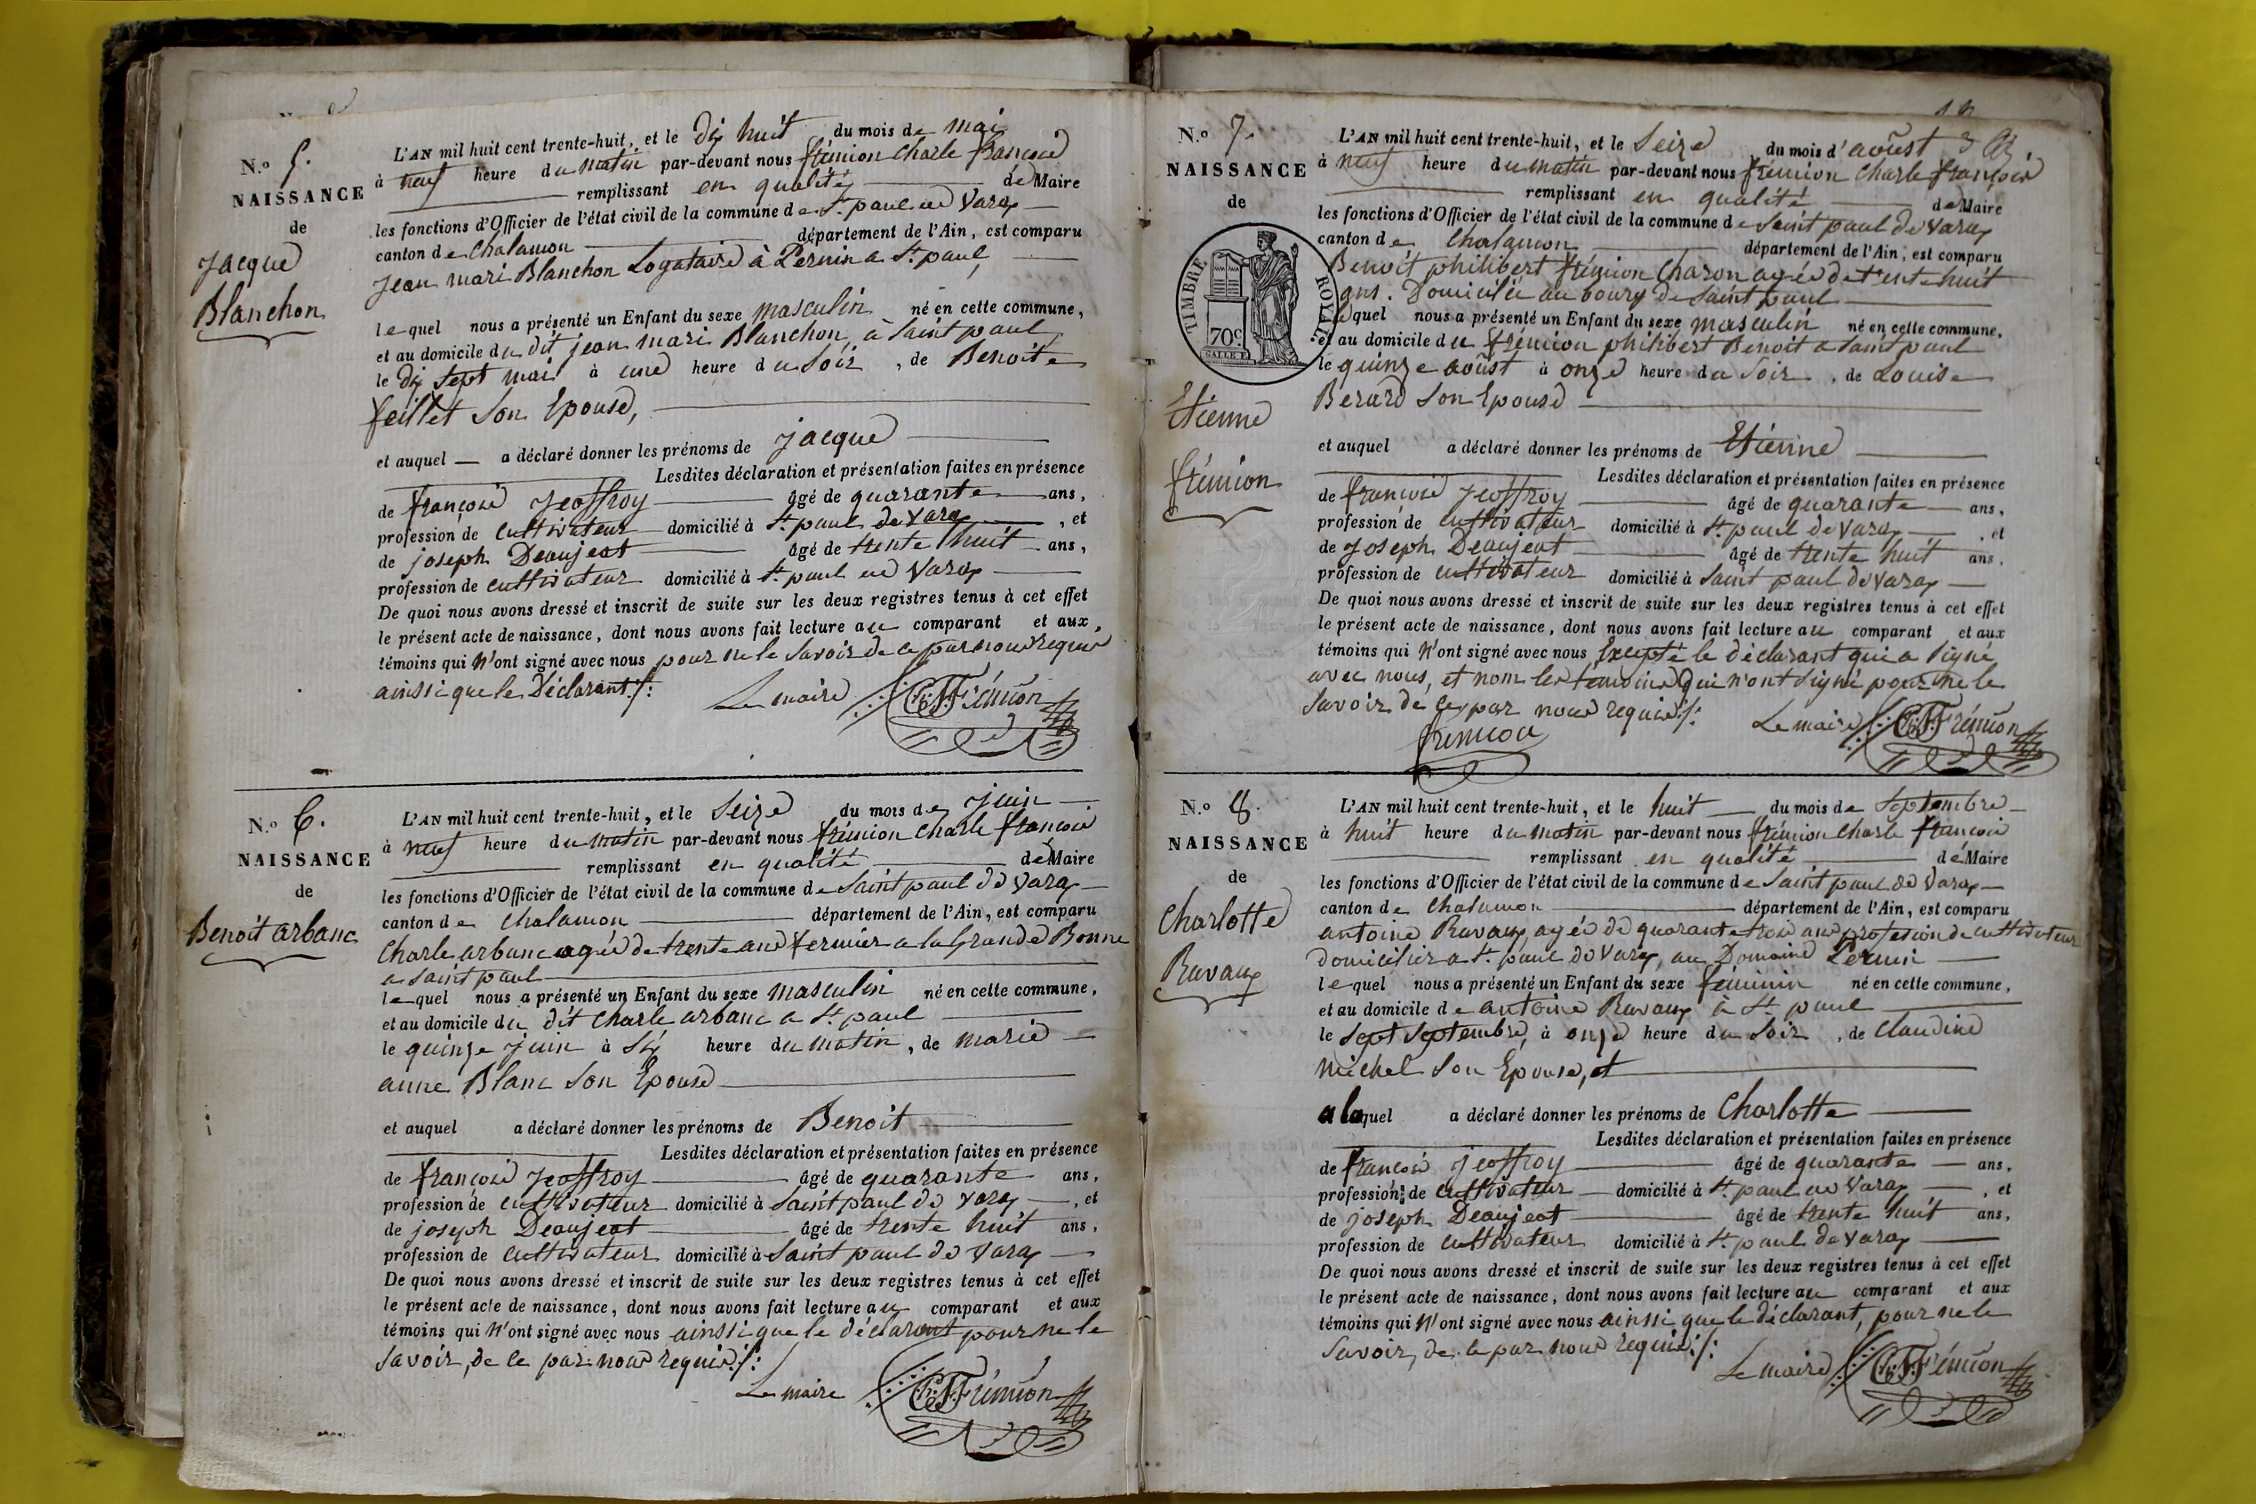 N.o 5.
NAISSANCE
de
Jacque
Blanchon
L'AN mil huit cent trente-huit, et le dix huit du mois de mai
à neuf heure du matin par-devant nous frémion Charle françois
remplissant en qualité de Maire
les fonctions d'Officier de l'état civil de la commune de St. paul de Varax
canton de Chalamon département de l'Ain, est comparu
Jean mari Blanchon Logataire à Pernin a St. paul
lequel nous a présenté un Enfant du sexe masculin né en cette commune,
et au domicile du dit jean mari Blanchon, à Saint paul
le dix sept mai à une heure du Soir, de Benoite
feillet Son Epouse,
et auquel a déclaré donner les prénoms de Jacque
Lesdites déclaration et présentation faites en présence
de françois Jeoffroy âgé de quarante ans,
profession de cultivateur domicilié à St. paul de Varax, et
de joseph Deaujeat âgé de trente huit ans,
profession de cultivateur domicilié à St. paul de Varax
De quoi nous avons dressé et inscrit de suite sur les deux registres tenus à cet effet
le présent acte de naissance, dont nous avons fait lecture au comparant et aux
témoins qui N'ont signé avec nous pour ne le Savoir de ce par nous requis
ainssi que le Déclarant ./:
Le maire Ch. F. Frémion
N.o 6.
NAISSANCE
de
Benoit arbanc
L'AN mil huit cent trente-huit, et le Seize du mois de Juin
à neuf heure du matin par-devant nous frémion Charle françois
remplissant en qualité de Maire
les fonctions d'Officier de l'état civil de la commune de Saint paul de Varax
canton de Chalamon département de l'Ain, est comparu
Charle arbanc agée de trente ans fermier a la Grande Bonne
a Saint paul
lequel nous a présenté un Enfant du sexe masculin né en cette commune,
et au domicile du dit Charle arbanc a St. paul
le quinze Juin à Six heure du matin, de marie
anne Blanc Son Epouse
et auquel a déclaré donner les prénoms de Benoit
Lesdites déclaration et présentation faites en présence
de françois Jeoffroy âgé de quarante ans,
profession de cultivateur domicilié à Saint paul de Varax, et
de joseph Deaujeat âgé de trente huit ans,
profession de cultivateur domicilié à Saint paul de Varax
De quoi nous avons dressé et inscrit de suite sur les deux registres tenus à cet effet
le présent acte de naissance, dont nous avons fait lecture au comparant et aux
témoins qui N'ont signé avec nous ainssi que le déclarant pour ne le
Savoir, de ce par nous requis ./:
Le maire Ch. F. Frémion
N.o 7.
NAISSANCE
de
TIMBRE ROYAL
70c
Etienne
frémion
L'AN mil huit cent trente-huit, et le Seize du mois d'août
à neuf heure du matin par-devant nous frémion Charle françois
remplissant en qualité de Maire
les fonctions d'Officier de l'état civil de la commune de Saint paul de Varax
canton de Chalamon département de l'Ain, est comparu
Benoit philibert frémion Charon agée de trente huit
ans. Domicilié au bourg de Saint paul
lequel nous a présenté un Enfant du sexe masculin né en cette commune,
et au domicile du frémion philibert Benoit a Saint paul
le quinze août à onze heure du Soir, de Louise
Berard Son Epouse
et auquel a déclaré donner les prénoms de Etienne
Lesdites déclaration et présentation faites en présence
de françois Jeoffroy âgé de quarante ans,
profession de cultivateur domicilié à St. paul de Varax, et
de Joseph Deaujeat âgé de trente huit ans,
profession de cultivateur domicilié à Saint paul de Varax
De quoi nous avons dressé et inscrit de suite sur les deux registres tenus à cet effet
le présent acte de naissance, dont nous avons fait lecture au comparant et aux
témoins qui N'ont signé avec nous Excepté le déclarant qui a Signé
avec nous, et nom les témoins Qui n'ont Signé pour ne le
Savoir de ce par nous requis ./:
frémion
Le maire Ch. F. Frémion
N.o 8.
NAISSANCE
de
Charlotte
Ravaux
L'AN mil huit cent trente-huit, et le huit du mois de Septembre
à huit heure du matin par-devant nous frémion Charle françois
remplissant en qualité de Maire
les fonctions d'Officier de l'état civil de la commune de Saint paul de Varax
canton de Chalamon département de l'Ain, est comparu
antoine Ravaux, agée de quarante trois ans profession de cultivateur
domicilier a St. paul de Varax, au Domaine Pernin
lequel nous a présenté un Enfant du sexe féminin né en cette commune,
et au domicile de antoine Ravaux à St. paul
le Sept Septembre, à onze heure du Soir, de Claudine
Michel Son Epouse, et
a laquel a déclaré donner les prénoms de Charlotte
Lesdites déclaration et présentation faites en présence
de françois Jeoffroy âgé de quarante ans,
profession de cultivateur domicilié à St. paul de Varax, et
de joseph Deaujeat âgé de trente huit ans,
profession de cultivateur domicilié à St. paul de Varax
De quoi nous avons dressé et inscrit de suite sur les deux registres tenus à cet effet
le présent acte de naissance, dont nous avons fait lecture au comparant et aux
témoins qui N'ont signé avec nous ainssi que le déclarant, pour ne le
Savoir, de ce par nous requis ./:
Le maire Ch. F. Frémion